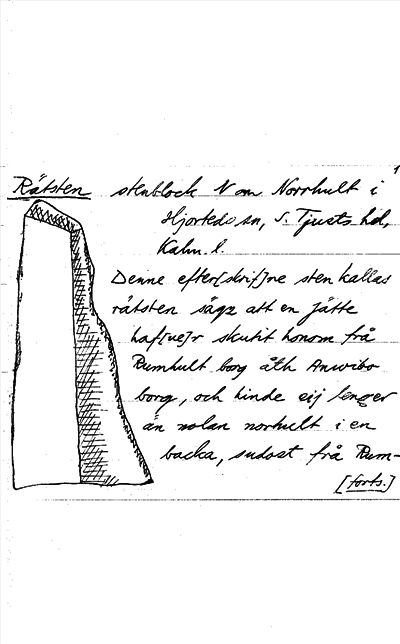 Rätsten stenblock N om Norrhult i
Hjorteds sn, S. Tjusts hd,
Kalm. l.
Denne efter[skrif]ne sten kallas
råtsten säges att en jätte
haf[ue]r skutit honom frå
Rumhult borg åth Anwibo
borg, och hinde eij lenger
än nolan norhult i en
backa, sudost frå Rum-
[forts.]